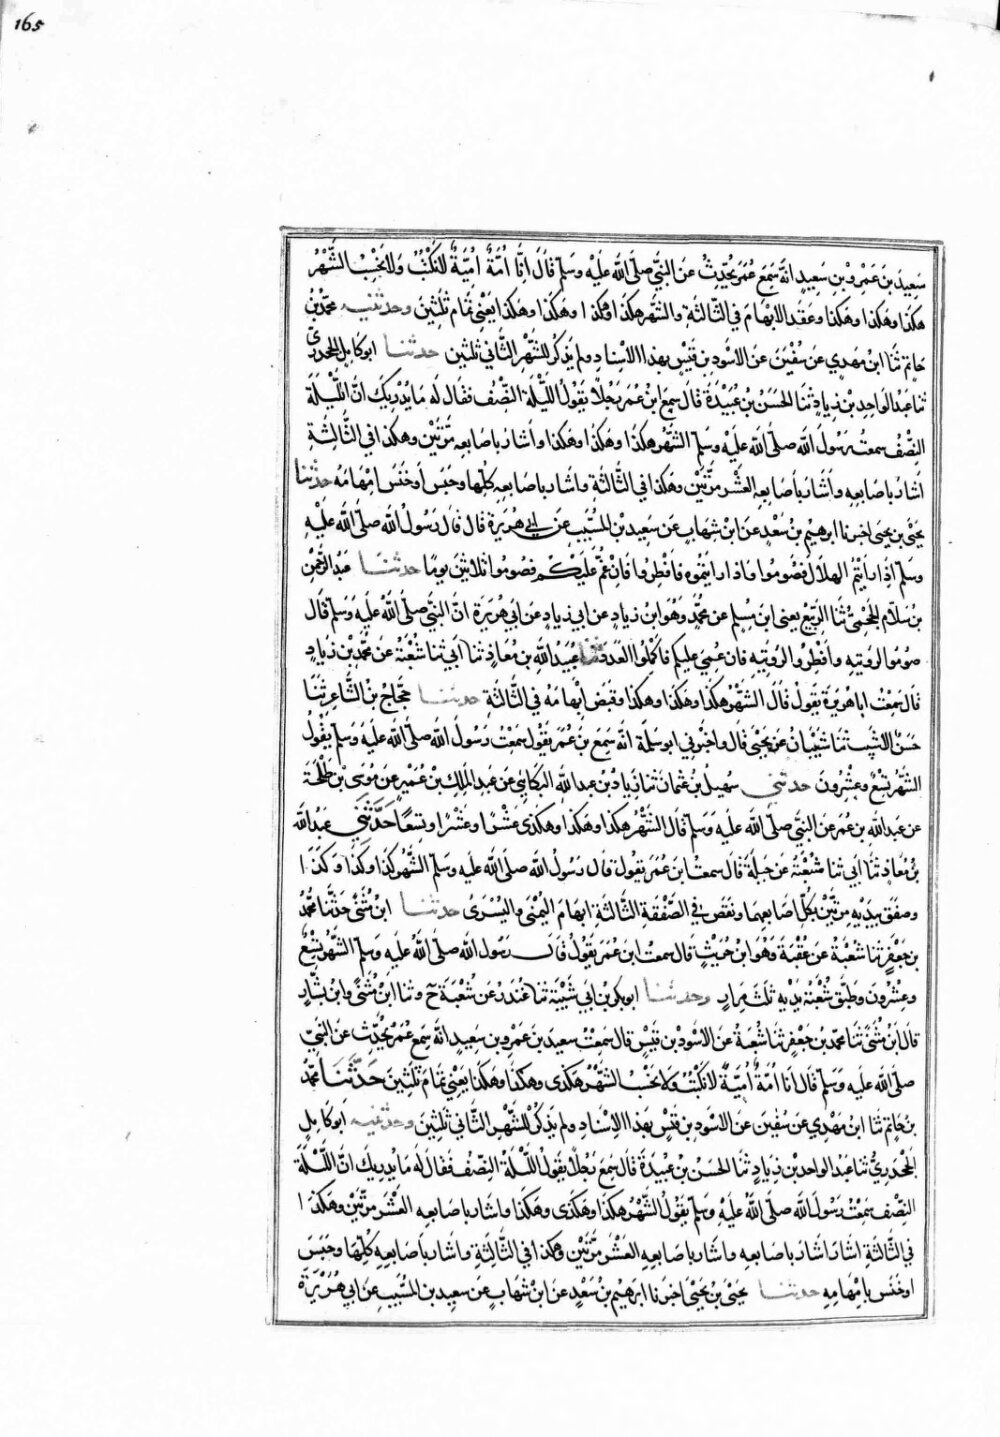 165
سَعِيدَ بنَ عَمرِو بْنِ سَعِيدٍ انَّهُ سَمِعَ عُمَرَ يُحَدِّثُ عَنِ النَّبي صلى الله عَلَيْهِ وَسَلَّم قَالَ اِنَّا اُمَّةٌ اُمِيَّةٌ لَانَكْتُبُ وَلَا نَحْسِبُ الشَّهْرُ
هكَذَا وهَكذَا وهَكذَا وعَقَدَ الابْهَامَ في الثَّالثَةِ والشَّهرُ هكَذَا وهَكذَا وهَكذَا يَعْنِي تَمَام ثَلٰثِينَ وحدثنيه محمّدُ بْنُ
حَاتِم ثَنَا ابنُ مَهدِي عن سُفْيٰنَ عَنِ الاَسْوَدِ بنِ قَيْسٍ بِهذا الاِسْنادِ ولم يَذكر للشَّهْرِ الثَّاني ثلٰثين حدثنا ابو كَامِلِ الجحدرِيُّ
ثنا عَبْدُ الوَاحِدِ بْنُ زِيادٍ ثَنا الحَسَنُ بْنُ عُبَيْدَةَ قَالَ سَمِعَ ابنُ عُمَرَ رَجُلًا يَقُولُ اللَّيْلَةَ النِّصْفُ فقَال لَه مَا يُدْرِيكَ انَّ اللَّيْلَةَ
النِّصْفُ سمعتُ رَسُولَ الله صلى الله عَلَيْهِ وَسَلَّم الشَّهْرُ هكَذَا وهَكذَا وهَكذَا واَشَارَ باصَابِعِه مَرَّتَيْنِ وهكذا في الثَّالِثَةِ
اَشَارَ باصَابِعِهِ واَشَارَ بأصَابِعِهِ العَشْرِ مرَّتَيْنِ وهَكذا في الثَّالثَةِ واشَارَ باصَابعِهِ كُلِّهَا وحَبَسَ اَوخَنَسَ ابْهَامَهُ حدّثنا
يَحْيَى بن يحيَى اخبرنا ابرهيمُ بنُ سَعْدٍ عن ابنِ شِهَابٍ عن سَعِيدِ بْنِ المُسَيَّبِ عن ابي هُرَيرةَ قال قال رَسُولُ الله صلّى الله عَلَيْهِ
وَسَلّم اِذَا رَأيْتُمُ الهِلَالَ فَصُومُوا وَاِذا رايتُموه فافْطِرُوا فَاِنْ غُمَّ عَلَيْكُمْ فَصُومُوا ثلاثينَ يومًا حدثنا عَبدُ الرَّحْمٰنِ
بنُ سَلَّام الجُمَحِيُّ ثنا الرَّبِيعُ يعنى ابن مُسلِم عن محمّدٍ وَهُوَ ابْنُ زيادٍ عن ابي هُرَيرَة انَّ النَّبيَّ صلَّى اللهُ عَلَيهِ وَسَلَّم قَالَ
صُومُوا لرؤيتِهِ وافْطِرُوا لِرُؤيَتِهِ فان غُمِّيَ عليكم فاكْمِلُوا العدَدَ ثنا عُبَيْدُ اللهِ بنُ مُعَاذٍ ثنا ابي ثنا شُعْبَةُ عن محَمَّدِ بْنِ زِيادٍ
قالَ سَمِعْتُ اباهُرَيْرَةَ يَقُولُ قَالَ الشَّهْرُ هكَذَا وهَكذَا وهكَذا وقَبَضَ اِبْهَامَهُ في الثَّالِثَةِ حدثنا حَجَّاجُ بْنُ الشَّاعِرِ ثَنَا
حَسَنٌ الاَشْيَبُ ثنَا شَيْبَانُ عن يَحْيَى قال واخبَرنِي ابوسَلمَةَ انّه سَمِعَ بن عُمَرَ يَقُولُ سَمِعْتُ رَسُولَ اللهِ صلَّى الله عَلَيهِ وَسلّم يَقُولُ
الشَّهْرُ تِسْعٌ وعِشْرُونَ حدثني سَهلُ بْنُ عُثمانَ ثنا زيادُ بْنُ عبدِ الله البَكَّايِي عن عبدِ المَلِكِ بن عُمَيْرٍ عن مُوسَى بْنِ طَلْحَةَ
عن عبدِ الله بنِ عُمَرَ عن النَّبي صلى الله عليهِ وَسلّم قَال الشَّهْرُ هكذَا وهَكذَا وهكذى عَشْرًا وعَشْرًا وتِسعًا حَدَّثَنِي عبدُ الله
بنُ مُعَاذٍ ثَنَا أبي ثنا شُعْبَةُ عن جَبَلَةَ قَالَ سمعتُ ابن عُمَرَ يقُول قال رَسُولُ اللهِ صلّى اللهُ علَيهِ وَسلّم الشّهْرُ كذَا وكَذَا وكَذَا
وصَفَق بيدَيْهِ مرتَّيْنِ بكُلِّ اصَابِعِهما ونقَصَ في الصَّفقَةِ الثَّالثَةِ ابهامَ اليُمْنَى واليُسْرَى حدثنا ابنُ مُثَنَّى حَدَّثَنا محمَّدُ
بن جَعْفَرٍ ثنا شُعْبَةُ عن عُقْبَةَ وَهُوَ ابْنُ حُرَيْثٍ قَال سمعتُ ابن عُمَرَ يَقُولُ قَال رَسُول الله صلَّى اللهُ عَلَيهِ وسَلّم الشَّهْرُ تِسْعٌ
وعِشْرُون وطَبَّقَ شُعْبَةُ يدَيْهِ ثَلٰثَ مِرَارٍ وحدثنا ابوبكرِ بن ابي شَيْبَةَ ثنا غُنْدَرٌ عن شُعْبَةَ ح وثنا ابنُ مُثَنَّى وابنُ بَشَّارٍ
قَالَ ابنُ مُثَنَّى ثنا محمّد بنُ جَعْفَرٍ ثنا شُعبَةُ عن الاَسْوَدِ بن قَيْسٍ قال سَمِعْتُ سعيدَ بن عَمْرِو بن سَعِيدٍ اَنَّهُ سَمِعَ عُمَرَ يُحَدِّثُ عن النَّبي
صلى الله عليه وسلّم قَال انَا اُمّةٌ اُمِّيَّةٌ لانَكْتُبُ ولانَحْسِبُ الشَّهْرُ هكَذى وهكذَا وهَكذا يَعْنِي تَمَامَ ثَلٰثِينَ حَدَّثَنَا محمّدُ
بن حَاتِم ثنا ابنُ مَهْدِي عن سُفْيٰنَ عن الاَسْوَدِ بن قَيْسٍ بهذا الاِسنادِ ولم يَذكُرْ للشَّهْرِ الثَّاني ثَلٰثِينَ وحدثنيه اَبُوكامِلٍ
الجَحْدَرِيُّ ثنا عَبْدُ الواحد بْن زِيادٍ ثَنا الحَسَن بْنُ عُبَيدَةَ قالَ سَمِعَ رَجُلًا يَقُولُ اللَّيْلَةُ النِّصفُ فَقَال لَه مَا يُدرِيكَ انَّ اللَّيْلَةَ
النِّصْفُ سَمِعْتُ رَسُولَ الله صلى اللهُ عَلَيْهِ وَسَلَّمَ يَقُولُ الشَّهْرُ هكَذَا وهَكذَى وهَكذَا واشَار باصَابِعِهِ العَشْرَ مرّتَيْن وهكَذَا
في الثَّالثَةِ اشَارَ اشَارَ باصَابِعِه واشَار باصَابِعِهِ العَشْرِ مرّتَيْنِ وهكذا في الثَّالِثَةِ واشَار باَصَابِعِهِ كُلِّهَا وحَبَسَ
اوخَنَس بابْهامِهِ حدثنا يَحْيَى بن يَحْيَى اخبَرَنا ابرَهِيمُ بن سَعْدٍ عن ابنِ شِهابٍ عن سَعِيدِ بن المُسَيَّبِ عن ابي هُرَيْرَةَ